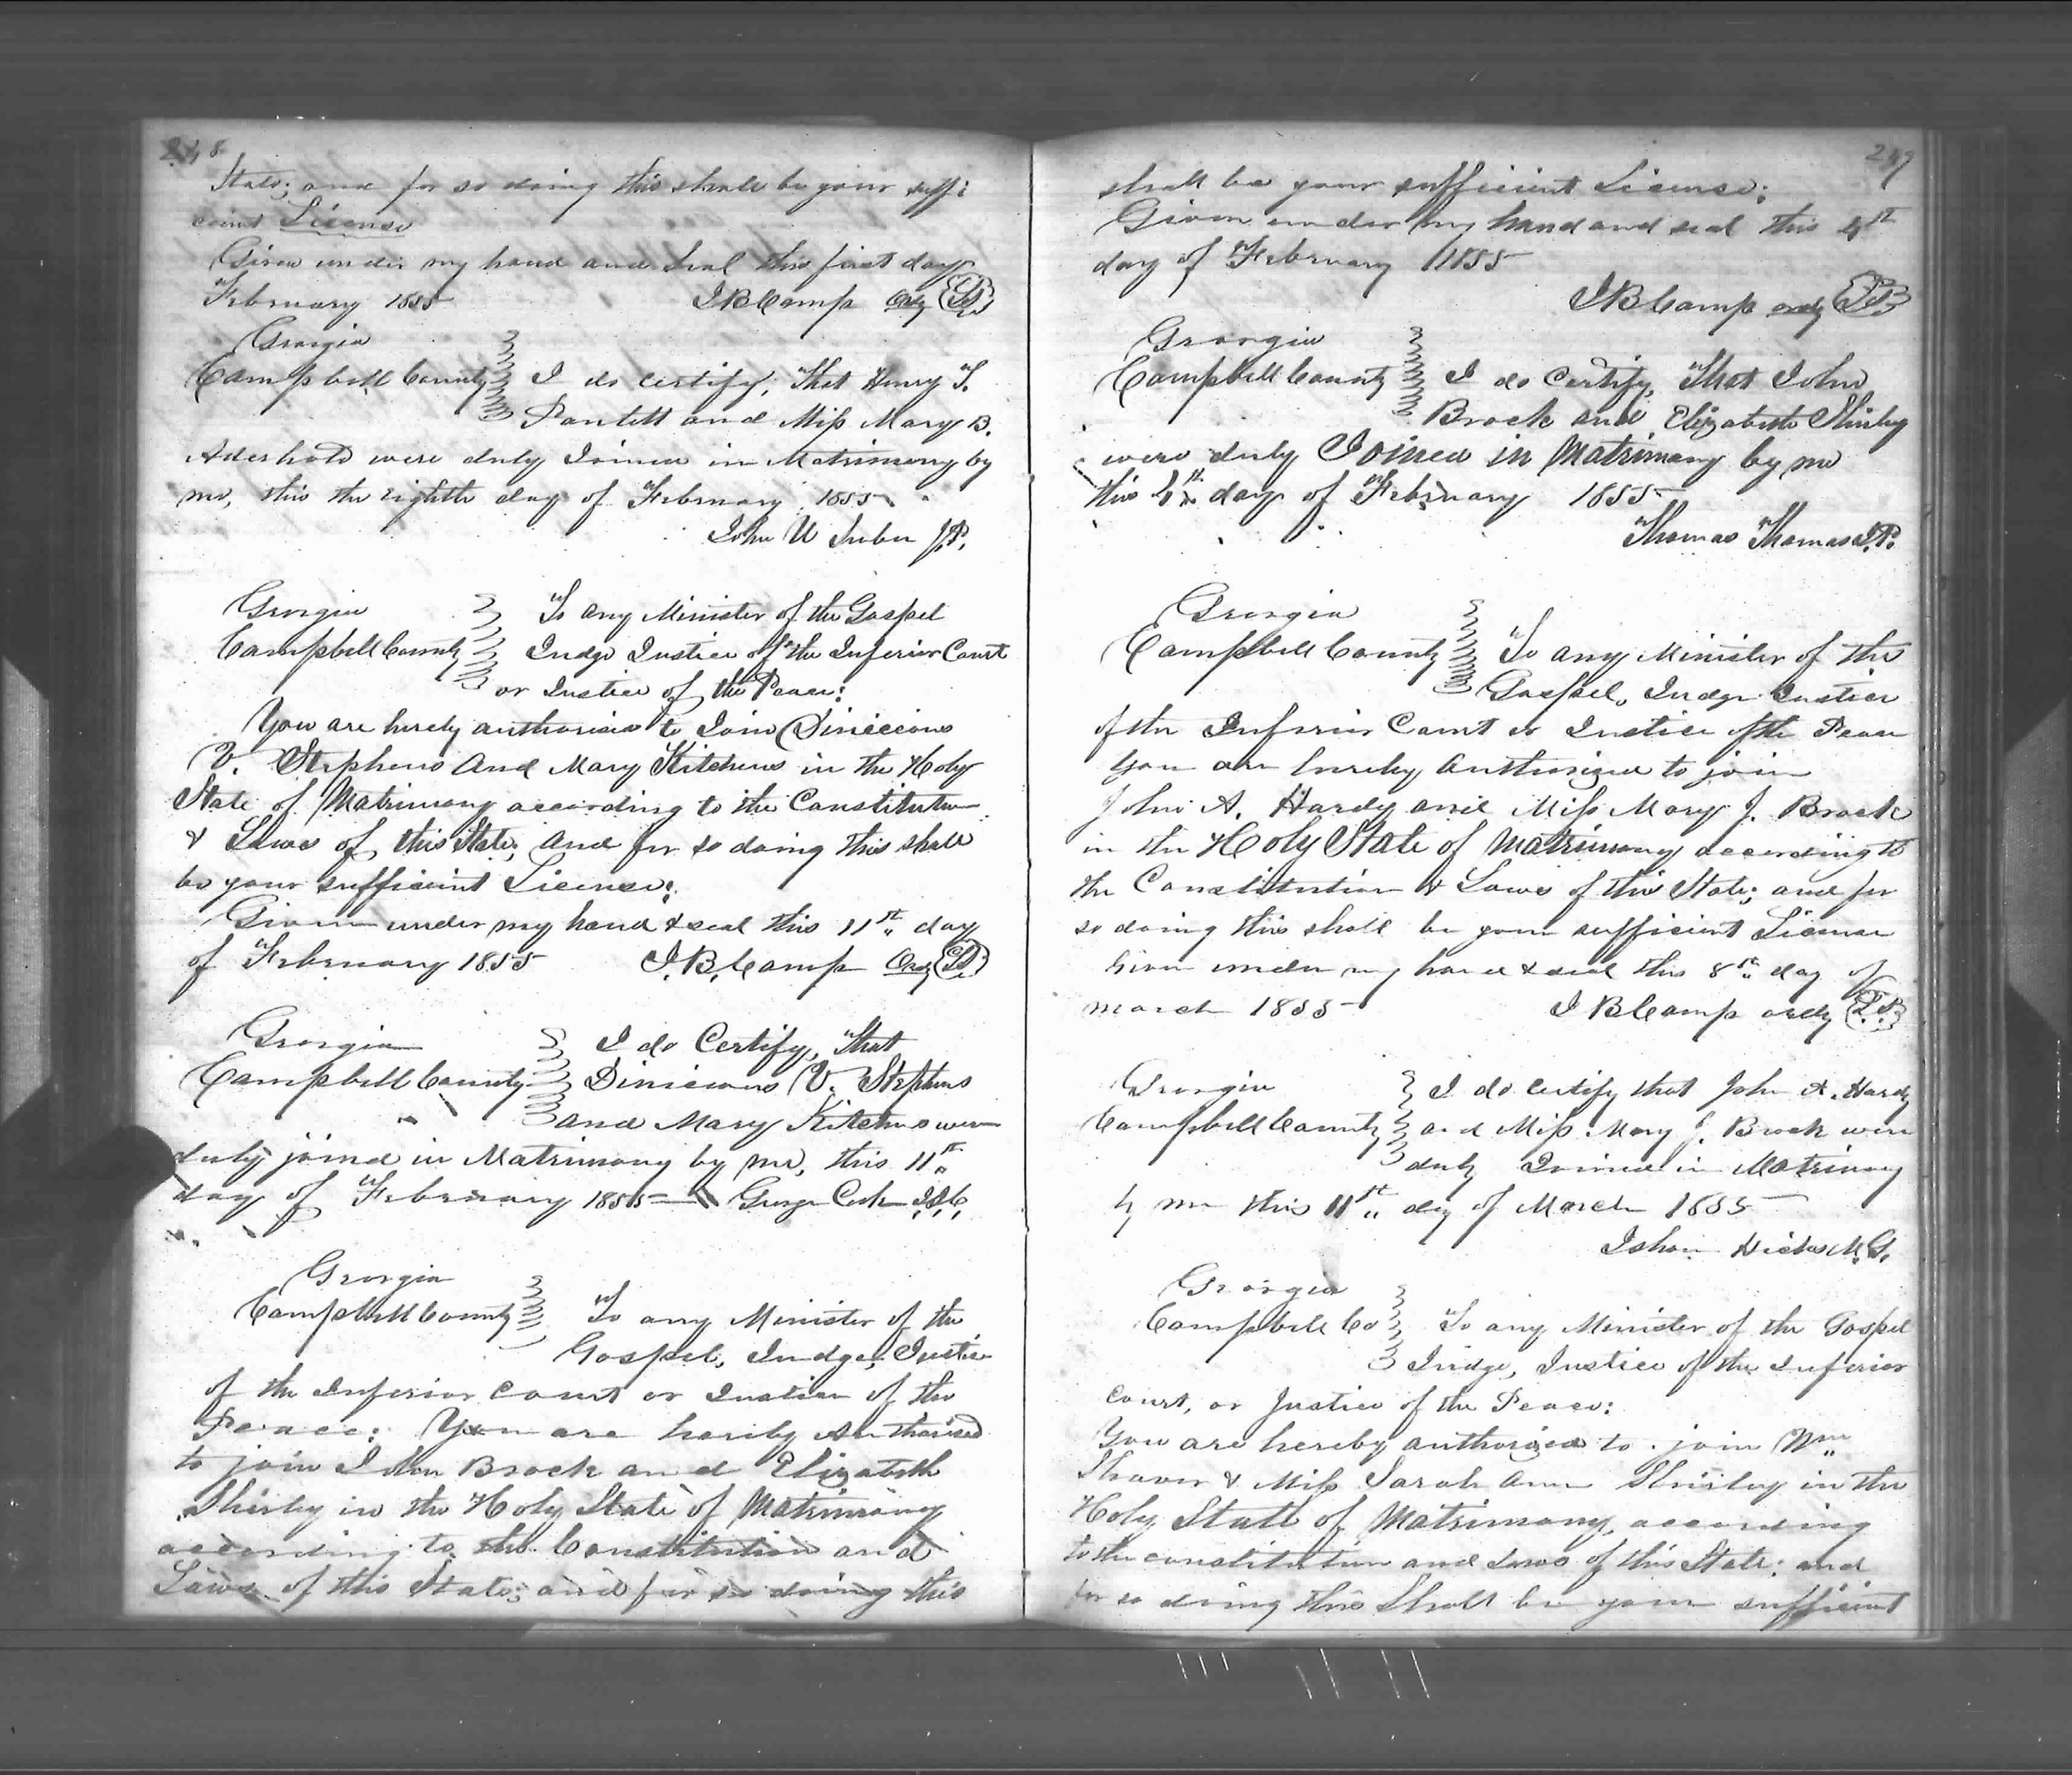 248
State; and for so doing this shall be your suffi
cient License
Given under my hand and seal this first day
February 1855 J B Camp Ordy L.S.
Georgia
Campbell County I do certify, That Henry T.
and Miss Mary B.
Aderhold were duly Joined in Matrimony by
me, this the eighth day of February 1855
John W J.P.
Georgia To any Minister of the Gospel
Campbell County Judge Justice of the Inferior Court
or Justice of the Peace:
You are hereby authorised to Join
V. Stephens And Mary Kitchens in the Holy
State of Matrimony according to the Constitution
& Laws of this State, and for so doing this shall
be your sufficient License:
Given under my hand & seal this 11st day
of February 1855 J.B. Camp Ordy L.S.
Georgia I do Certify, That
Campbell County V. Stephens
and Mary Kitchens were
duly joined in Matrimony by me, this 11st
day of February 1855 George Cook J.I.C.
Georgia
Campbell County To any Minister of the
Gospel, Judge, Justice
of the Inferior Court or Justice of the
Peace: You are hereby Authorised
to join John Brock and Elizabeth
Shirley in the Holy State of Matrimony
according to the Constitution and
Laws of this State; and for so doing this
249
shall be your sufficient License;
Given under my hand and seal this 4st
day of February 1855
J B Camp ordy L.S.
Georgia
Campbell County I do Certify, That John
Brock and Elizabeth Shirley
were duly Joined in Matrimony by me
this 4th day of February 1855
Thomas Thomas J.P.
Georgia
Campbell County To any Minister of the
Gospel, Judge Justice
of the Inferior Court or Justice of the Peace
You are hereby Authorized to join
John A. Hardy and Miss Mary J. Brock
in the Holy State of Matrimony according to
the Constitution & Laws of this State; and for
so doing this shall be your sufficient License
Given under my hand & seal this 8st day of
march 1855 J B Camp ordy L.S.
Georgia I do certify that John A. Hardy
Campbell County and Miss Mary J. Brock were
duly Joined in Matrimony
by me this 11st day of March 1855
Isham Hicks M.G.
Georgia
Campbell Co To any Minister of the Gospel
Judge, Justice of the Inferior
Court, or Justice of the Peace:
You are hereby authorized to join Wm
& Miss Sarah Ann Shirley in the
Holy State of Matrimony, according
to the constitution and Laws of this State; and
for so doing this Shall be your sufficient